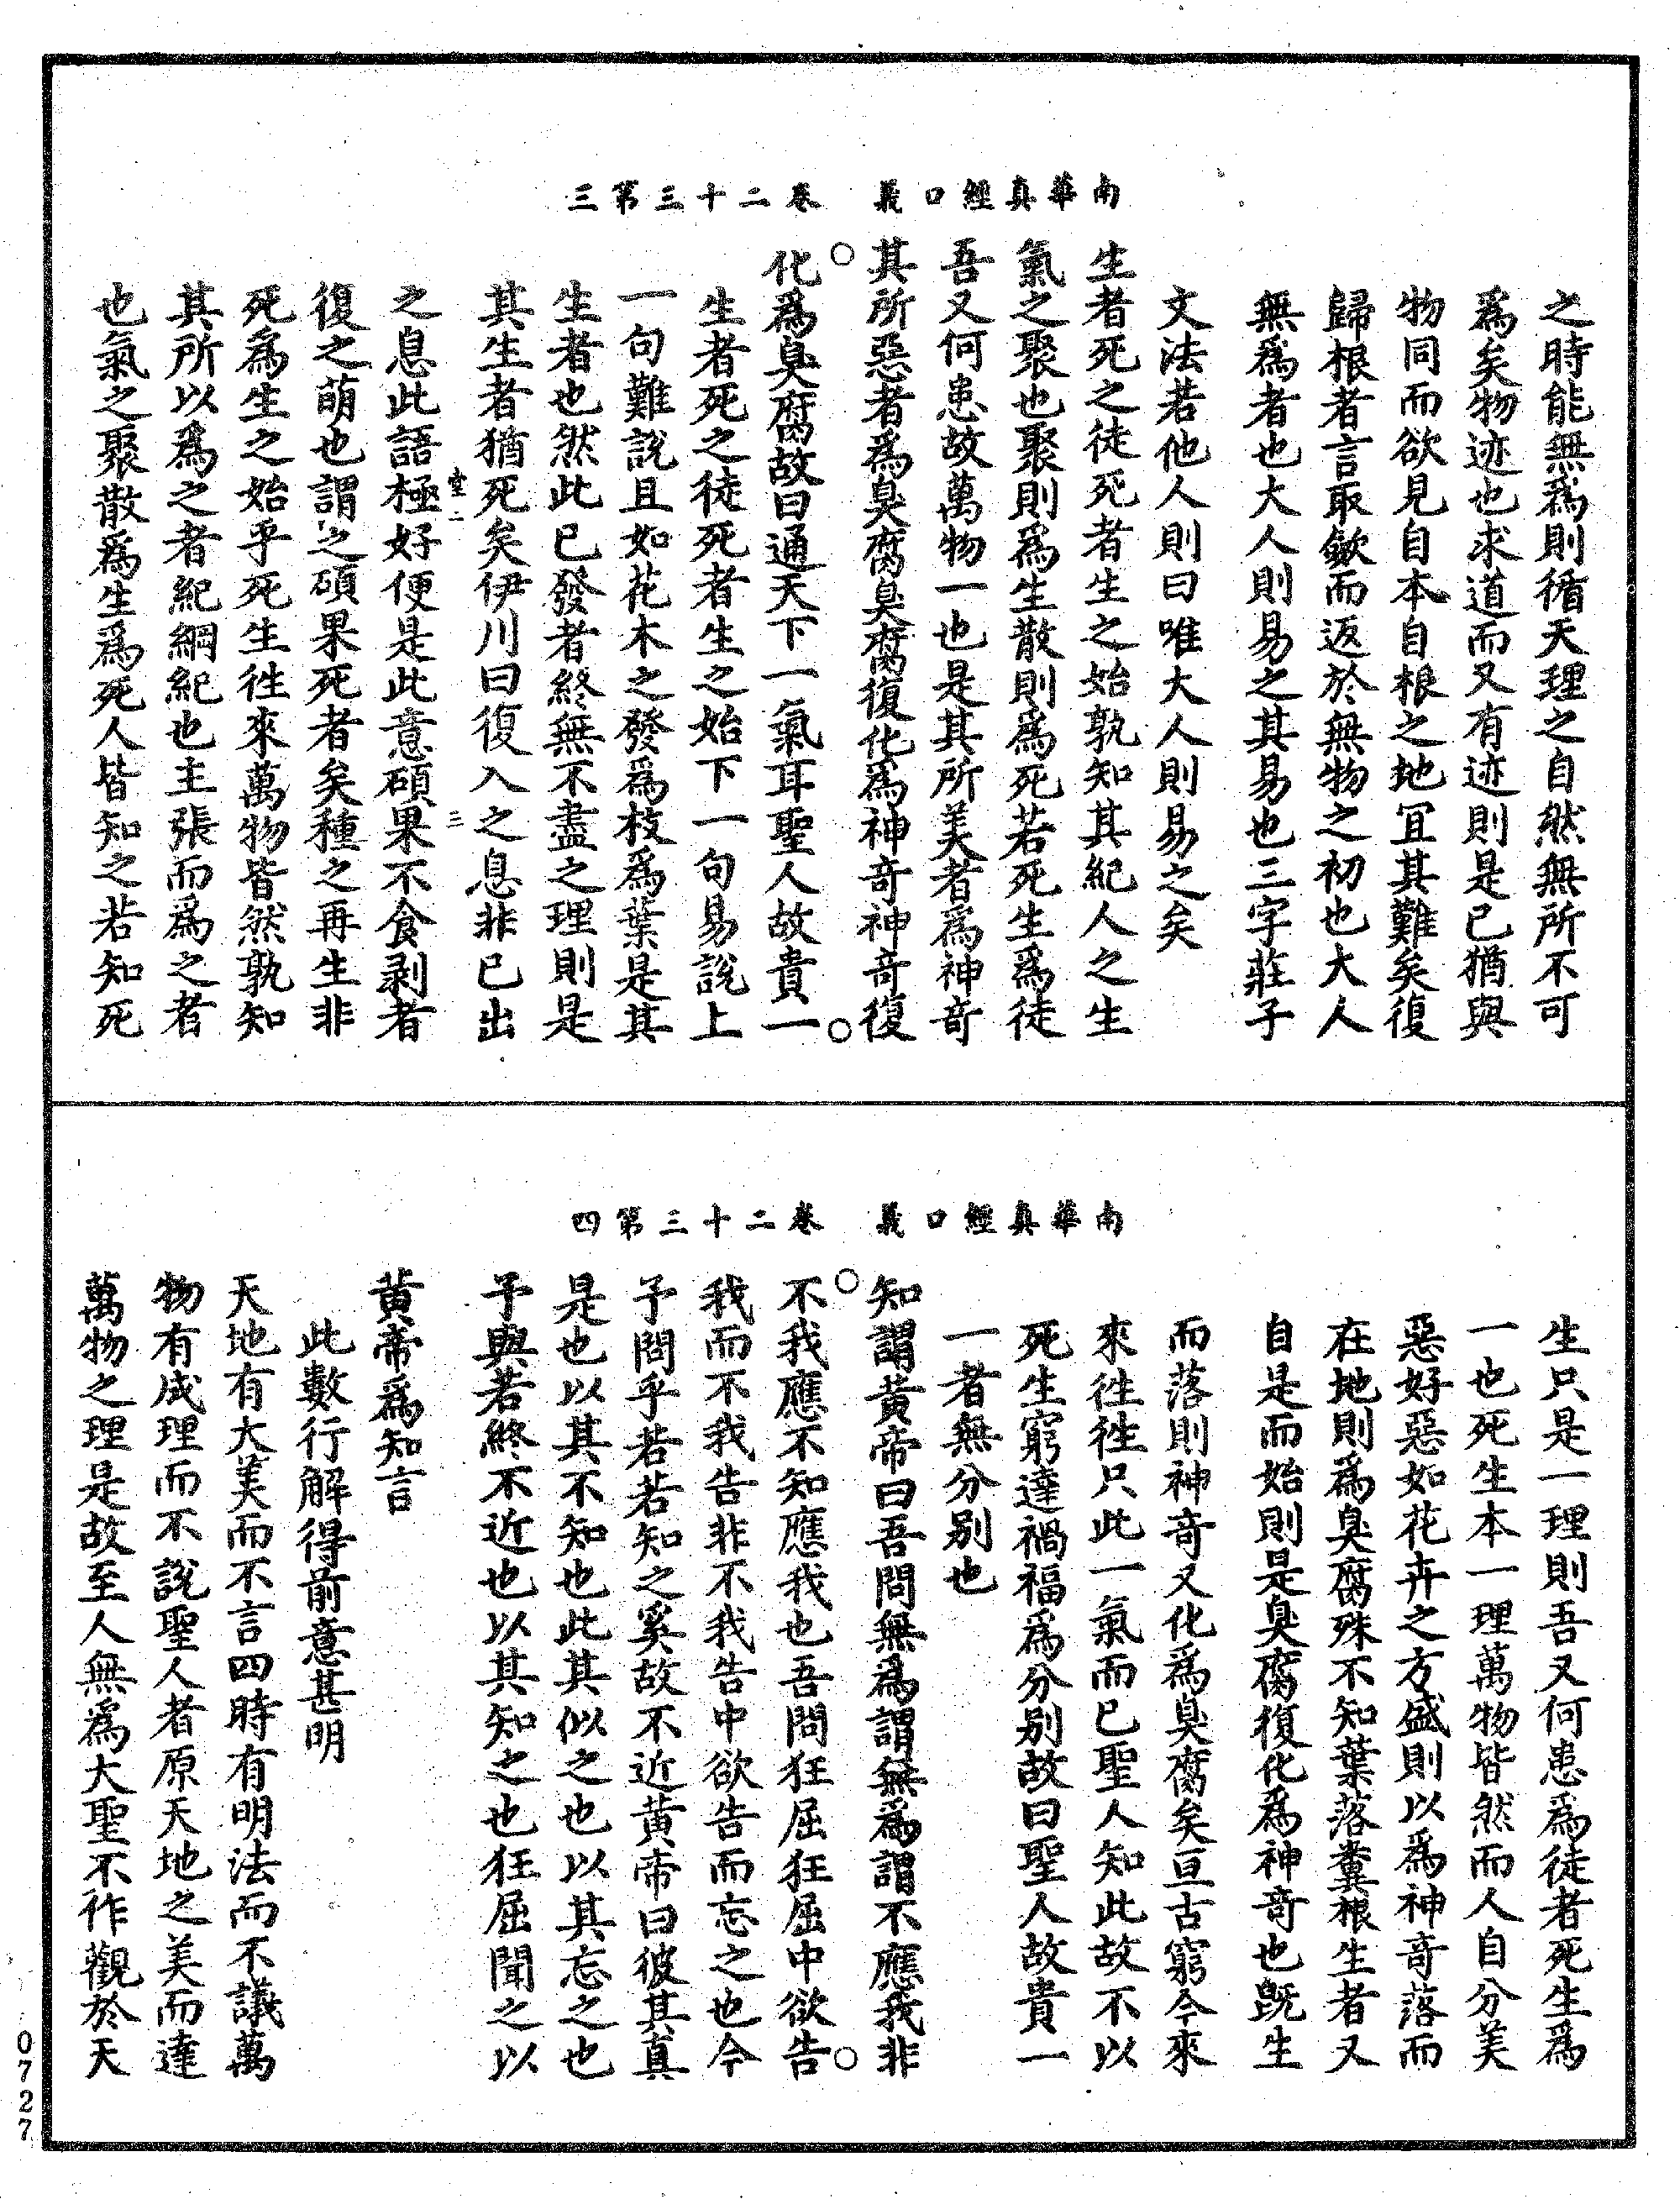 南華真經口義　卷二十三第三
之時能無爲則循天理之自然無所不可
爲矣物迹也求道而又有迹則是已猶與
物同而欲見自本自根之地冝其難矣復
歸根者言取歛而返於無物之初也大人
無爲者也大人則易之其易也三字莊子
文法若他人則曰唯大人則易之矣
生者死之徒死者生之始孰知其紀人之生
氣之聚也聚則爲生散則爲死若死生爲徒
吾又何患故萬物一也是其所美者爲神竒
其所惡者爲臭腐臭腐復化爲神竒神竒復
化爲臭腐故曰通天下一氣耳聖人故貴一
生者死之徒死者生之始下一句易說上
一句難說且如花木之發爲枝爲葉是其
生者也然此已發者終無不盡之理則是
其生者猶死矣伊川曰復入之息非已出
堂二　三
之息此語極好便是此意碩果不食剥者
復之萌也謂之碩果死者矣種之再生非
死爲生之始乎死生徃來萬物皆然孰知
其所以爲之者紀綱紀也主張而爲之者
也氣之聚散爲生爲死人皆知之若知死
南華真經口義　卷二十三第四
生只是一理則吾又何患爲徒者死生爲
一也死生本一理萬物皆然而人自分美
惡好惡如花卉之方盛則以爲神竒落而
在地則爲臭腐殊不知葉落糞根生者又
自是而始則是臭腐復化爲神竒也旣生
而落則神竒又化爲臭腐矣亘古窮今來
來徃徃只此一氣而已聖人知此故不以
死生窮達禍福爲分别故曰聖人故貴一
一者無分别也
知謂黄帝曰吾問無爲謂無爲謂不應我非
不我應不知應我也吾問狂屈狂屈中欲告
我而不我告非不我告中欲告而忘之也今
予問乎若若知之奚故不近黄帝曰彼其真
是也以其不知也此其似之也以其忘之也
予與若終不近也以其知之也狂屈聞之以
黄帝爲知言
此數行解得前意甚明
天地有大美而不言四時有明法而不議萬
物有成理而不說聖人者原天地之美而達
萬物之理是故至人無爲大聖不作觀於天
0727